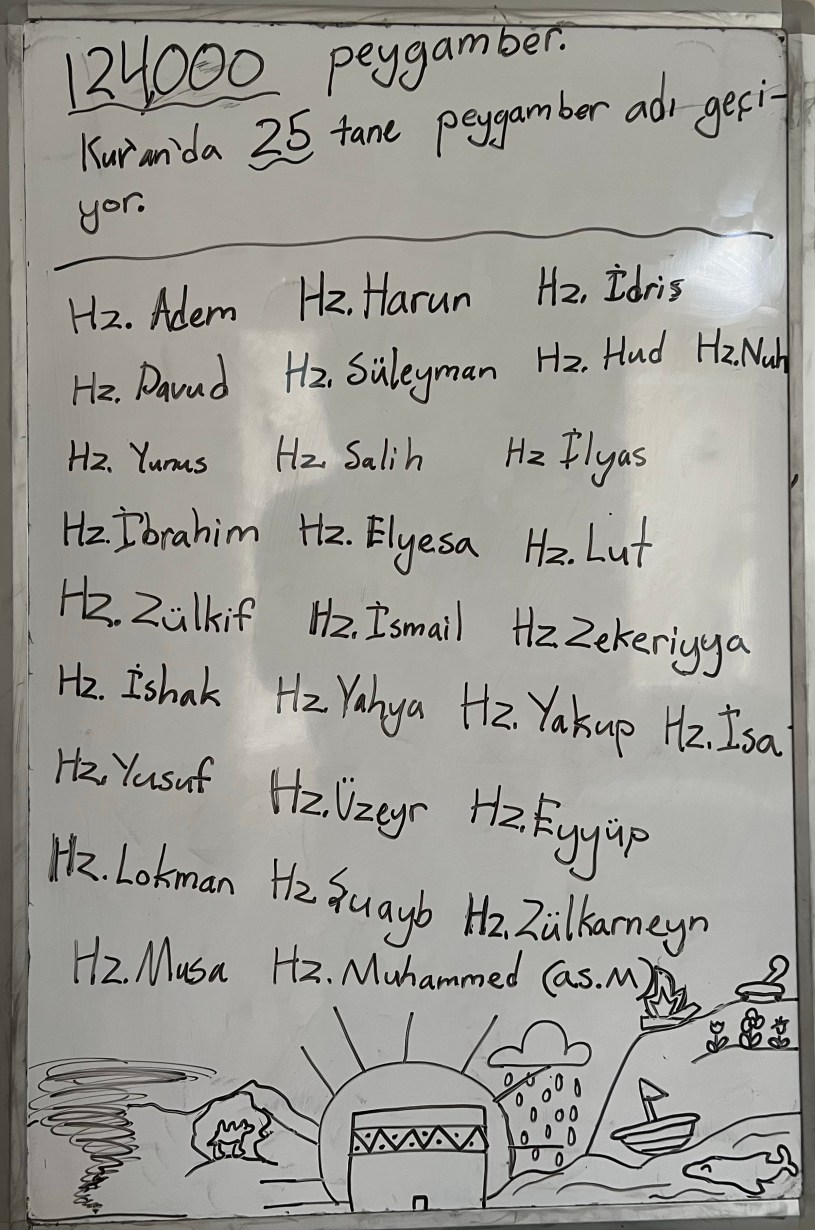 124,000 peygamber.
Kur'an'da 25 tane peygamber adı geçi-
yor.
Hz. Adem Hz. Harun Hz. İdris
Hz. Davud Hz. Süleyman Hz. Hud Hz. Nuh
Hz. Yunus Hz. Salih Hz İlyas
Hz. İbrahim Hz. Elyesa Hz. Lut
Hz. Zülkif Hz. İsmail Hz Zekeriyya
Hz. İshak Hz Yahya Hz. Yakup Hz. İsa
Hz. Yusuf Hz. Üzeyr Hz. Eyyüp
Hz. Lokman Hz Şuayb Hz. Zülkarneyn
Hz. Musa Hz. Muhammed (a.s.M)